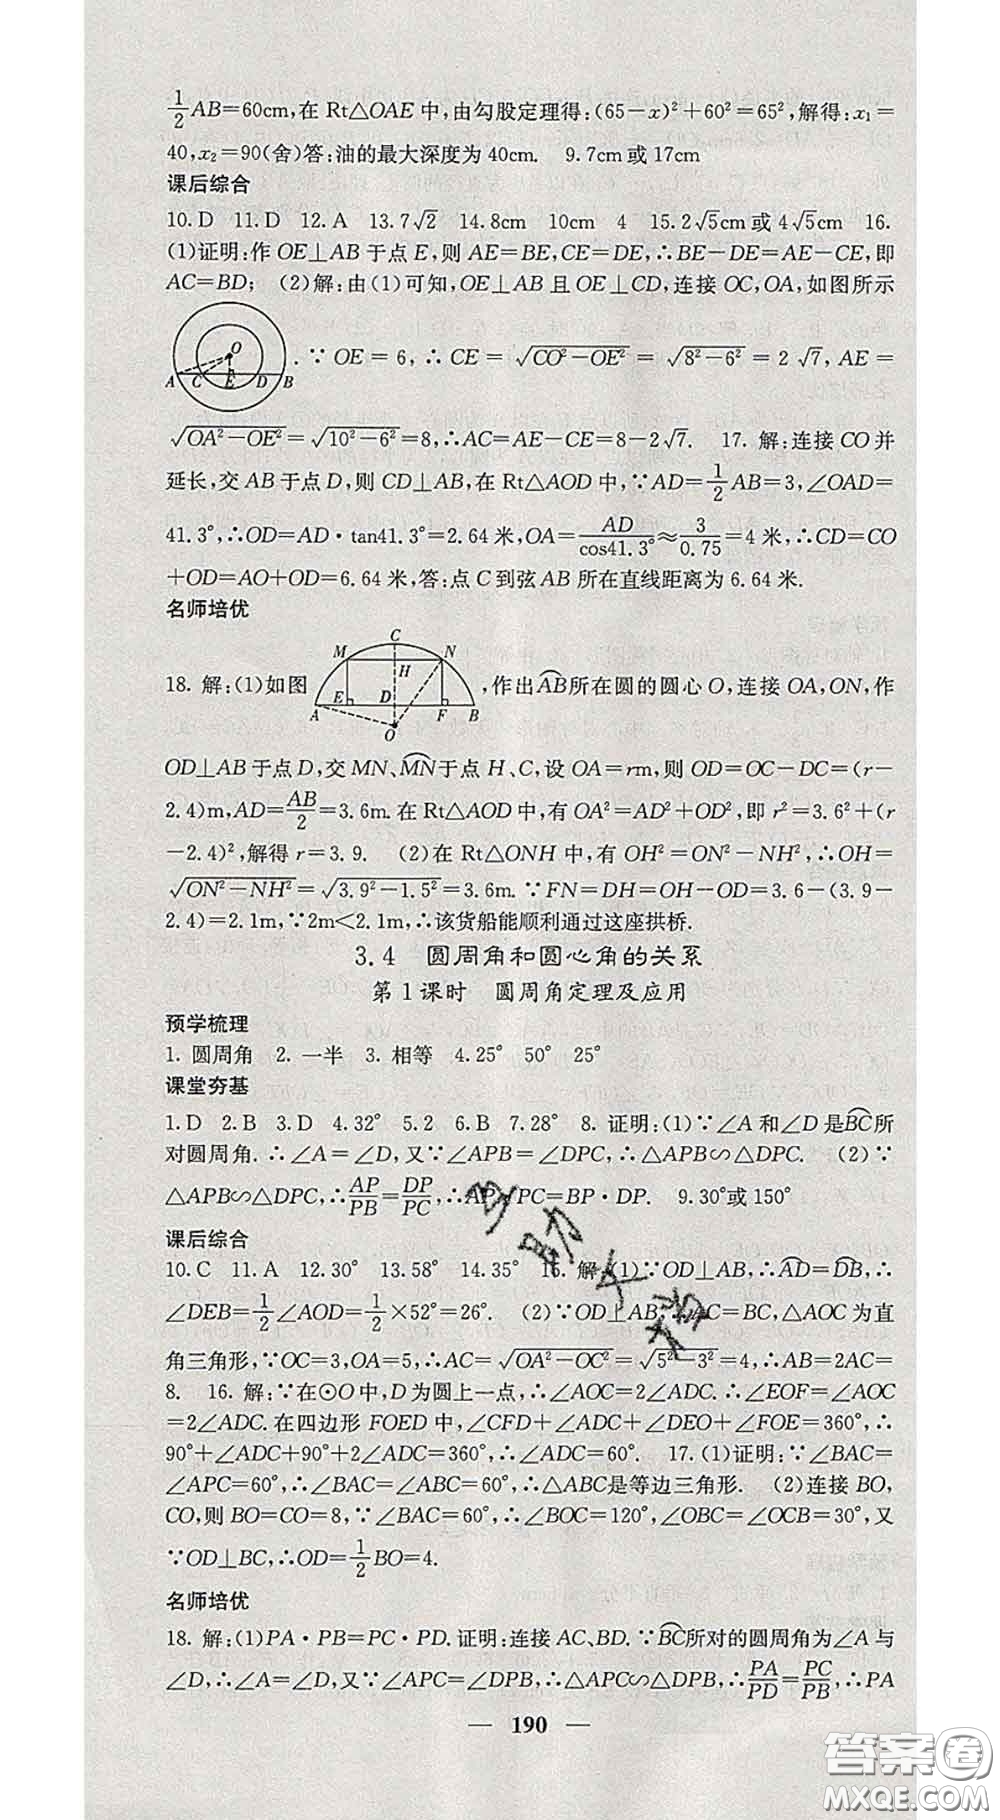 1/2AB=60cm,在 Rt△OAE 中,由勾股定理得:(65-x)²+60²=65²,解得:x₁=
40,x₂=90(舍)答:油的最大深度为 40cm. 9.7cm或17cm
课后综合
10.D 11.D 12.A 13.7√2 14.8cm 10cm 4 15.2√5cm或4√5cm 16.
(1)证明:作 OE⊥AB 于点 E,则 AE=BE,CE=DE,∴BE-DE=AE-CE,即
AC=BD; (2)解:由(1)可知,OE⊥AB 且 OE⊥CD,连接 OC,OA,如图所示
O A C E D B
.∵OE=6,∴CE=√(CO²-OE²)=√(8²-6²)=2√7,AE=
√(OA²-OE²)=√(10²-6²)=8,∴AC=AE-CE=8-2√7. 17. 解:连接 CO 并
延长,交 AB 于点 D,则 CD⊥AB,在 Rt△AOD 中,∵AD=1/2AB=3,∠OAD=
41.3°,∴OD=AD·tan41.3°=2.64 米,OA=AD/cos41.3°≈3/0.75=4 米,∴CD=CO
+OD=AO+OD=6.64 米,答:点 C 到弦 AB 所在直线距离为 6.64 米.
名师培优
M C N H A E D F B O
18. 解:(1)如图,作出AB所在圆的圆心 O,连接 OA,ON,作
OD⊥AB 于点 D,交 MN、MN于点 H、C,设 OA=rm,则 OD=OC-DC=(r-
2.4)m,AD=AB/2=3.6m.在 Rt△AOD 中,有 OA²=AD²+OD²,即 r²=3.6²+(r
-2.4)²,解得 r=3.9. (2)在 Rt△ONH 中,有 OH²=ON²-NH²,∴OH=
√(ON²-NH²)=√(3.9²-1.5²)=3.6m.∵FN=DH=OH-OD=3.6-(3.9-
2.4)=2.1m,∵2m<2.1m,∴该货船能顺利通过这座拱桥.
3.4 圆周角和圆心角的关系
第1课时 圆周角定理及应用
预学梳理
1. 圆周角 2. 一半 3. 相等 4.25° 50° 25°
课堂夯基
1.D 2.B 3.D 4.32° 5.2 6.B 7.28° 8. 证明:(1)∵∠A 和∠D 是BC所
对圆周角.∴∠A=∠D,又∵∠APB=∠DPC,∴△APB∽△DPC. (2)∵
△APB∽△DPC,∴AP/PB=DP/PC,∴AP·PC=BP·DP. 9.30°或150°
课后综合
10.C 11.A 12.30° 13.58° 14.35° 15. 解:(1)∵OD⊥AB,∴AD=DB,∴
∠DEB=1/2∠AOD=1/2×52°=26°. (2)∵OD⊥AB,∴AC=BC,△AOC 为直
角三角形,∵OC=3,OA=5,∴AC=√(OA²-OC²)=√(5²-3²)=4,∴AB=2AC=
8. 16. 解:∵在⊙O 中,D 为圆上一点,∴∠AOC=2∠ADC.∴∠EOF=∠AOC
=2∠ADC.在四边形 FOED 中,∠CFD+∠ADC+∠DEO+∠FOE=360°,∴
90°+∠ADC+90°+2∠ADC=360°,∴∠ADC=60°. 17.(1)证明:∵∠BAC=
∠APC=60°,∴∠BAC=∠ABC=60°,∴△ABC是等边三角形. (2)连接 BO,
CO,则 BO=CO=8,∵∠BAC=60°,∴∠BOC=120°,∠OBC=∠OCB=30°,又
∵OD⊥BC,∴OD=1/2BO=4.
名师培优
18. 解:(1)PA·PB=PC·PD.证明:连接 AC、BD.∵BC所对的圆周角为∠A 与
∠D,∴∠A=∠D,又∵∠APC=∠DPB,∴△APC∽△DPB,∴PA/PD=PC/PB,∴PA
— 190 —
答案圈
MXQE.COM